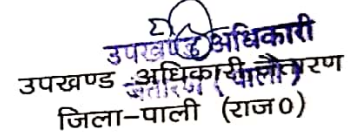 उपखण्ड अधिकारी
जैतारण (पाली)
उपखण्ड अधिकारी, जैतारण
जिला-पाली (राज०)